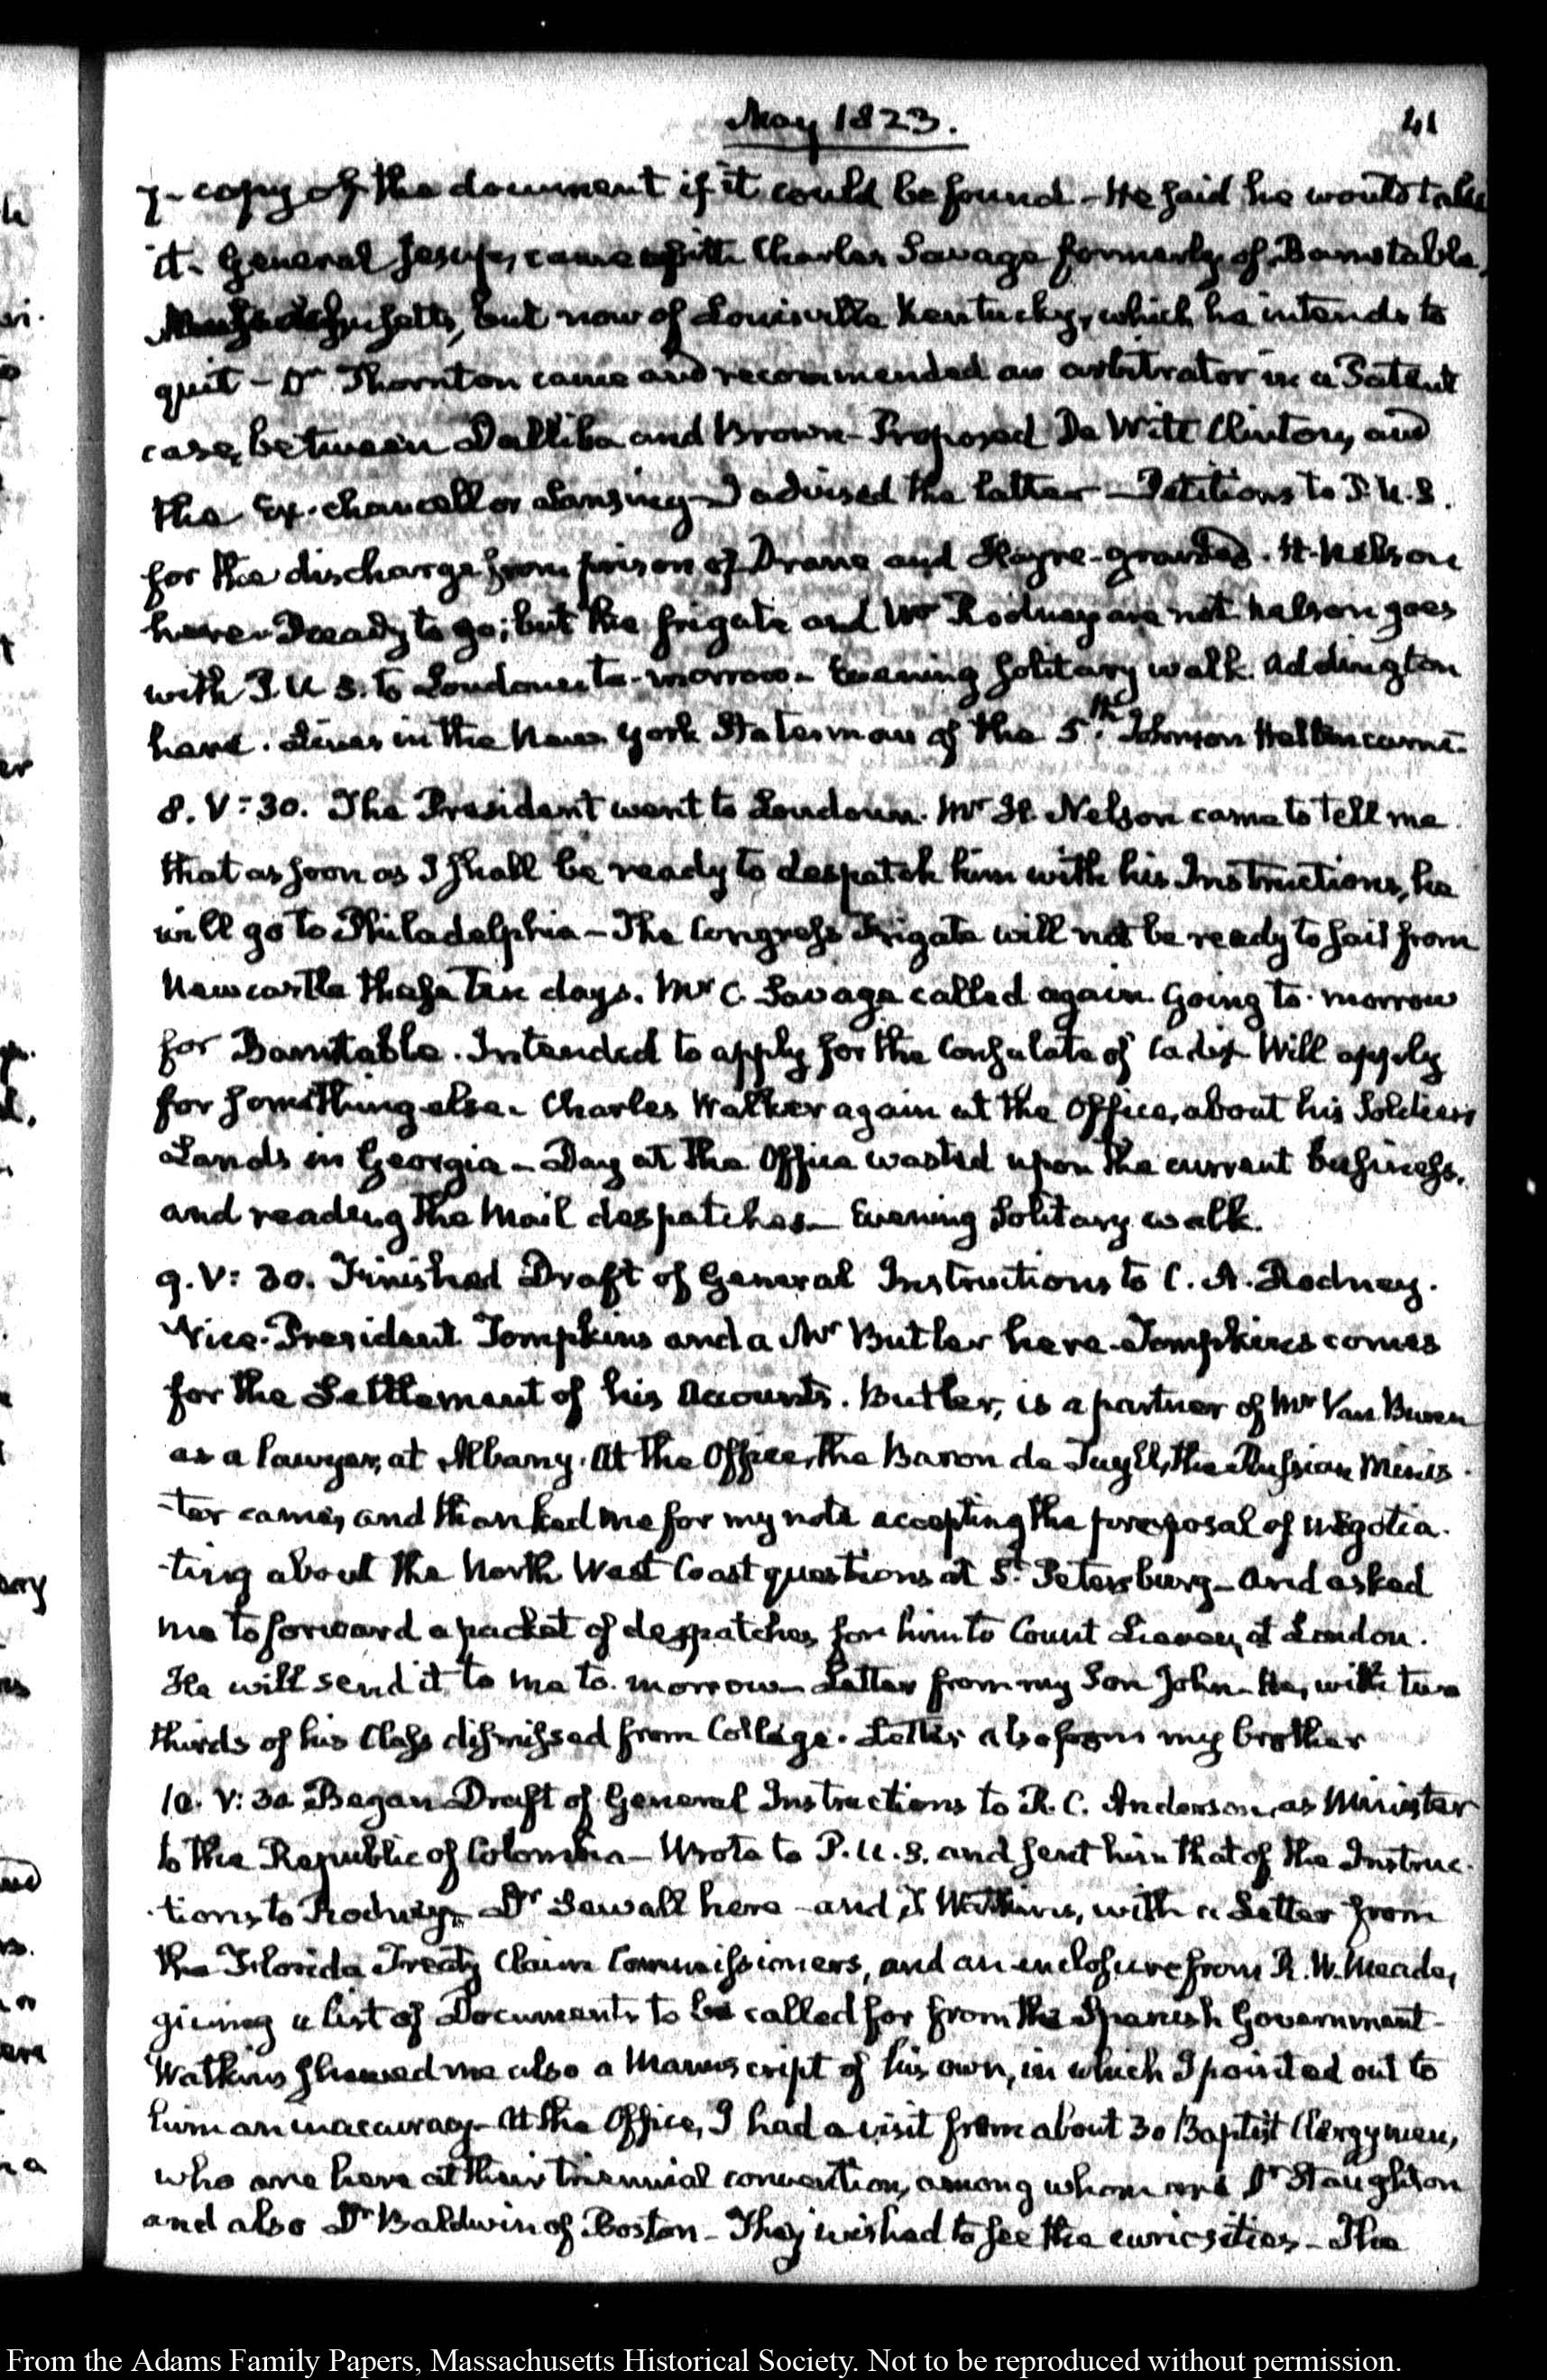 May 1823.
41
7- copy of the document if it could be found - He said he would take
it. General Jesup, came with Charles Savage formerly of Barnstable,
Massachusetts, but now of Louisville Kentucky, which he intends to
quit - Dr. Thornton came and recommended an arbitrator in a Patent
case, between Dalliba and Brown - Proposed De Witt Clinton, and
the Ex-chancellor Lansing - I advised the latter - Petitions to P.U.S.
for the discharge from prison of Drane and Hayre - granted. H. Nelson
here - Ready to go; but the frigate and Mr Rodney are not. Nelson goes
with P.U.S. to Loudoun to-morrow - Evening solitary walk. Addington
here. Lines in the New York Statesman of the 5th. Johnson Hellen came.
8. V: 30. The President went to Loudoun. Mr H. Nelson came to tell me
that as soon as I shall be ready to despatch him with his Instructions, he
will go to Philadelphia - The Congress Frigate will not be ready to sail from
Newcastle these ten days. Mr C. Savage called again. Going to-morrow
for Barnstable. Intended to apply for the Consulate of Cadiz. Will apply
for something else. Charles Walker again at the Office, about his Soldiers
Lands in Georgia - Day at the Office wasted upon the current business,
and reading the Mail despatches - Evening solitary walk.
9. V: 30. Finished Draft of General Instructions to C. A. Rodney.
Vice-President Tompkins and a Mr Butler here. Tompkins comes
for the Settlement of his Accounts. Butler, is a partner of Mr Van Buren
as a lawyer, at Albany. At the Office, the Baron de Tuyll, the Russian Minis-
-ter came, and thanked me for my note accepting the proposal of negotia-
-ting about the North West Coast questions at St. Petersburg - and asked
me to forward a packet of despatches for him to Count Lieven, at London.
He will send it to me to-morrow - Letter from my Son John - He, with two
thirds of his Class dismissed from College. Letter also from my brother
10. V: 30. Began Draft of General Instructions to R. C. Anderson, as Minister
to the Republic of Colombia - Wrote to P.U.S. and sent him that of the Instruc-
-tions to Rodney. Dr Sewall here - and T. Watkins, with a Letter from
the Florida Treaty Claim Commissioners, and an enclosure from R. W. Meade,
giving a list of Documents to be called for from the Spanish Government -
Watkins shewed me also a Manuscript of his own, in which I pointed out to
him an inaccuracy - At the Office, I had a visit from about 30 Baptist Clergymen,
who are here at their triennial convention, among whom are Dr Staughton
and also Dr Baldwin of Boston - They wished to see the curiosities - The
From the Adams Family Papers, Massachusetts Historical Society. Not to be reproduced without permission.